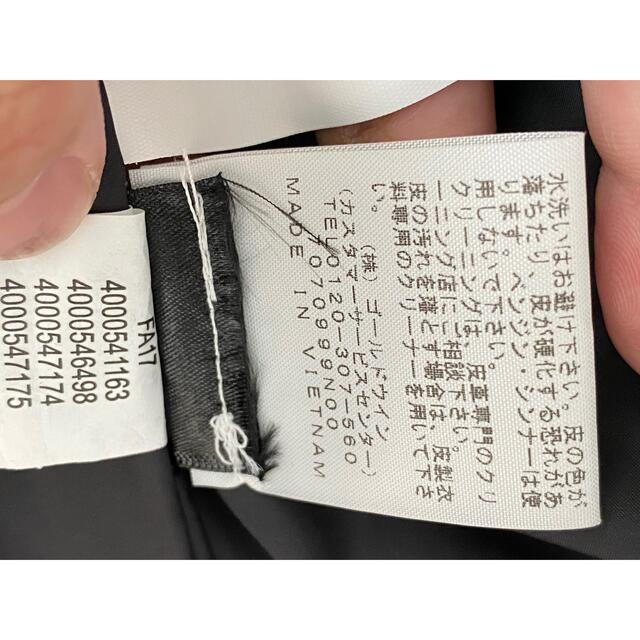 FA17
4000541163
4000546498
4000547174
4000547175
水洗いはお避け下さい。皮の色が
落ちたり、皮が硬化する恐れがあ
ります。ベンジン・シンナーは使
用しないで下さい。
クリーニングは、皮革専門のクリ
ーニング店にご相談下さい。
皮の汚れを落とす場合は、皮製衣
料専用のクリーナーを用いて下さ
い。
(株)ゴールドウイン
(カスタマーサービスセンター)
TEL0120-307-560
70999N00
MADE IN VIETNAM